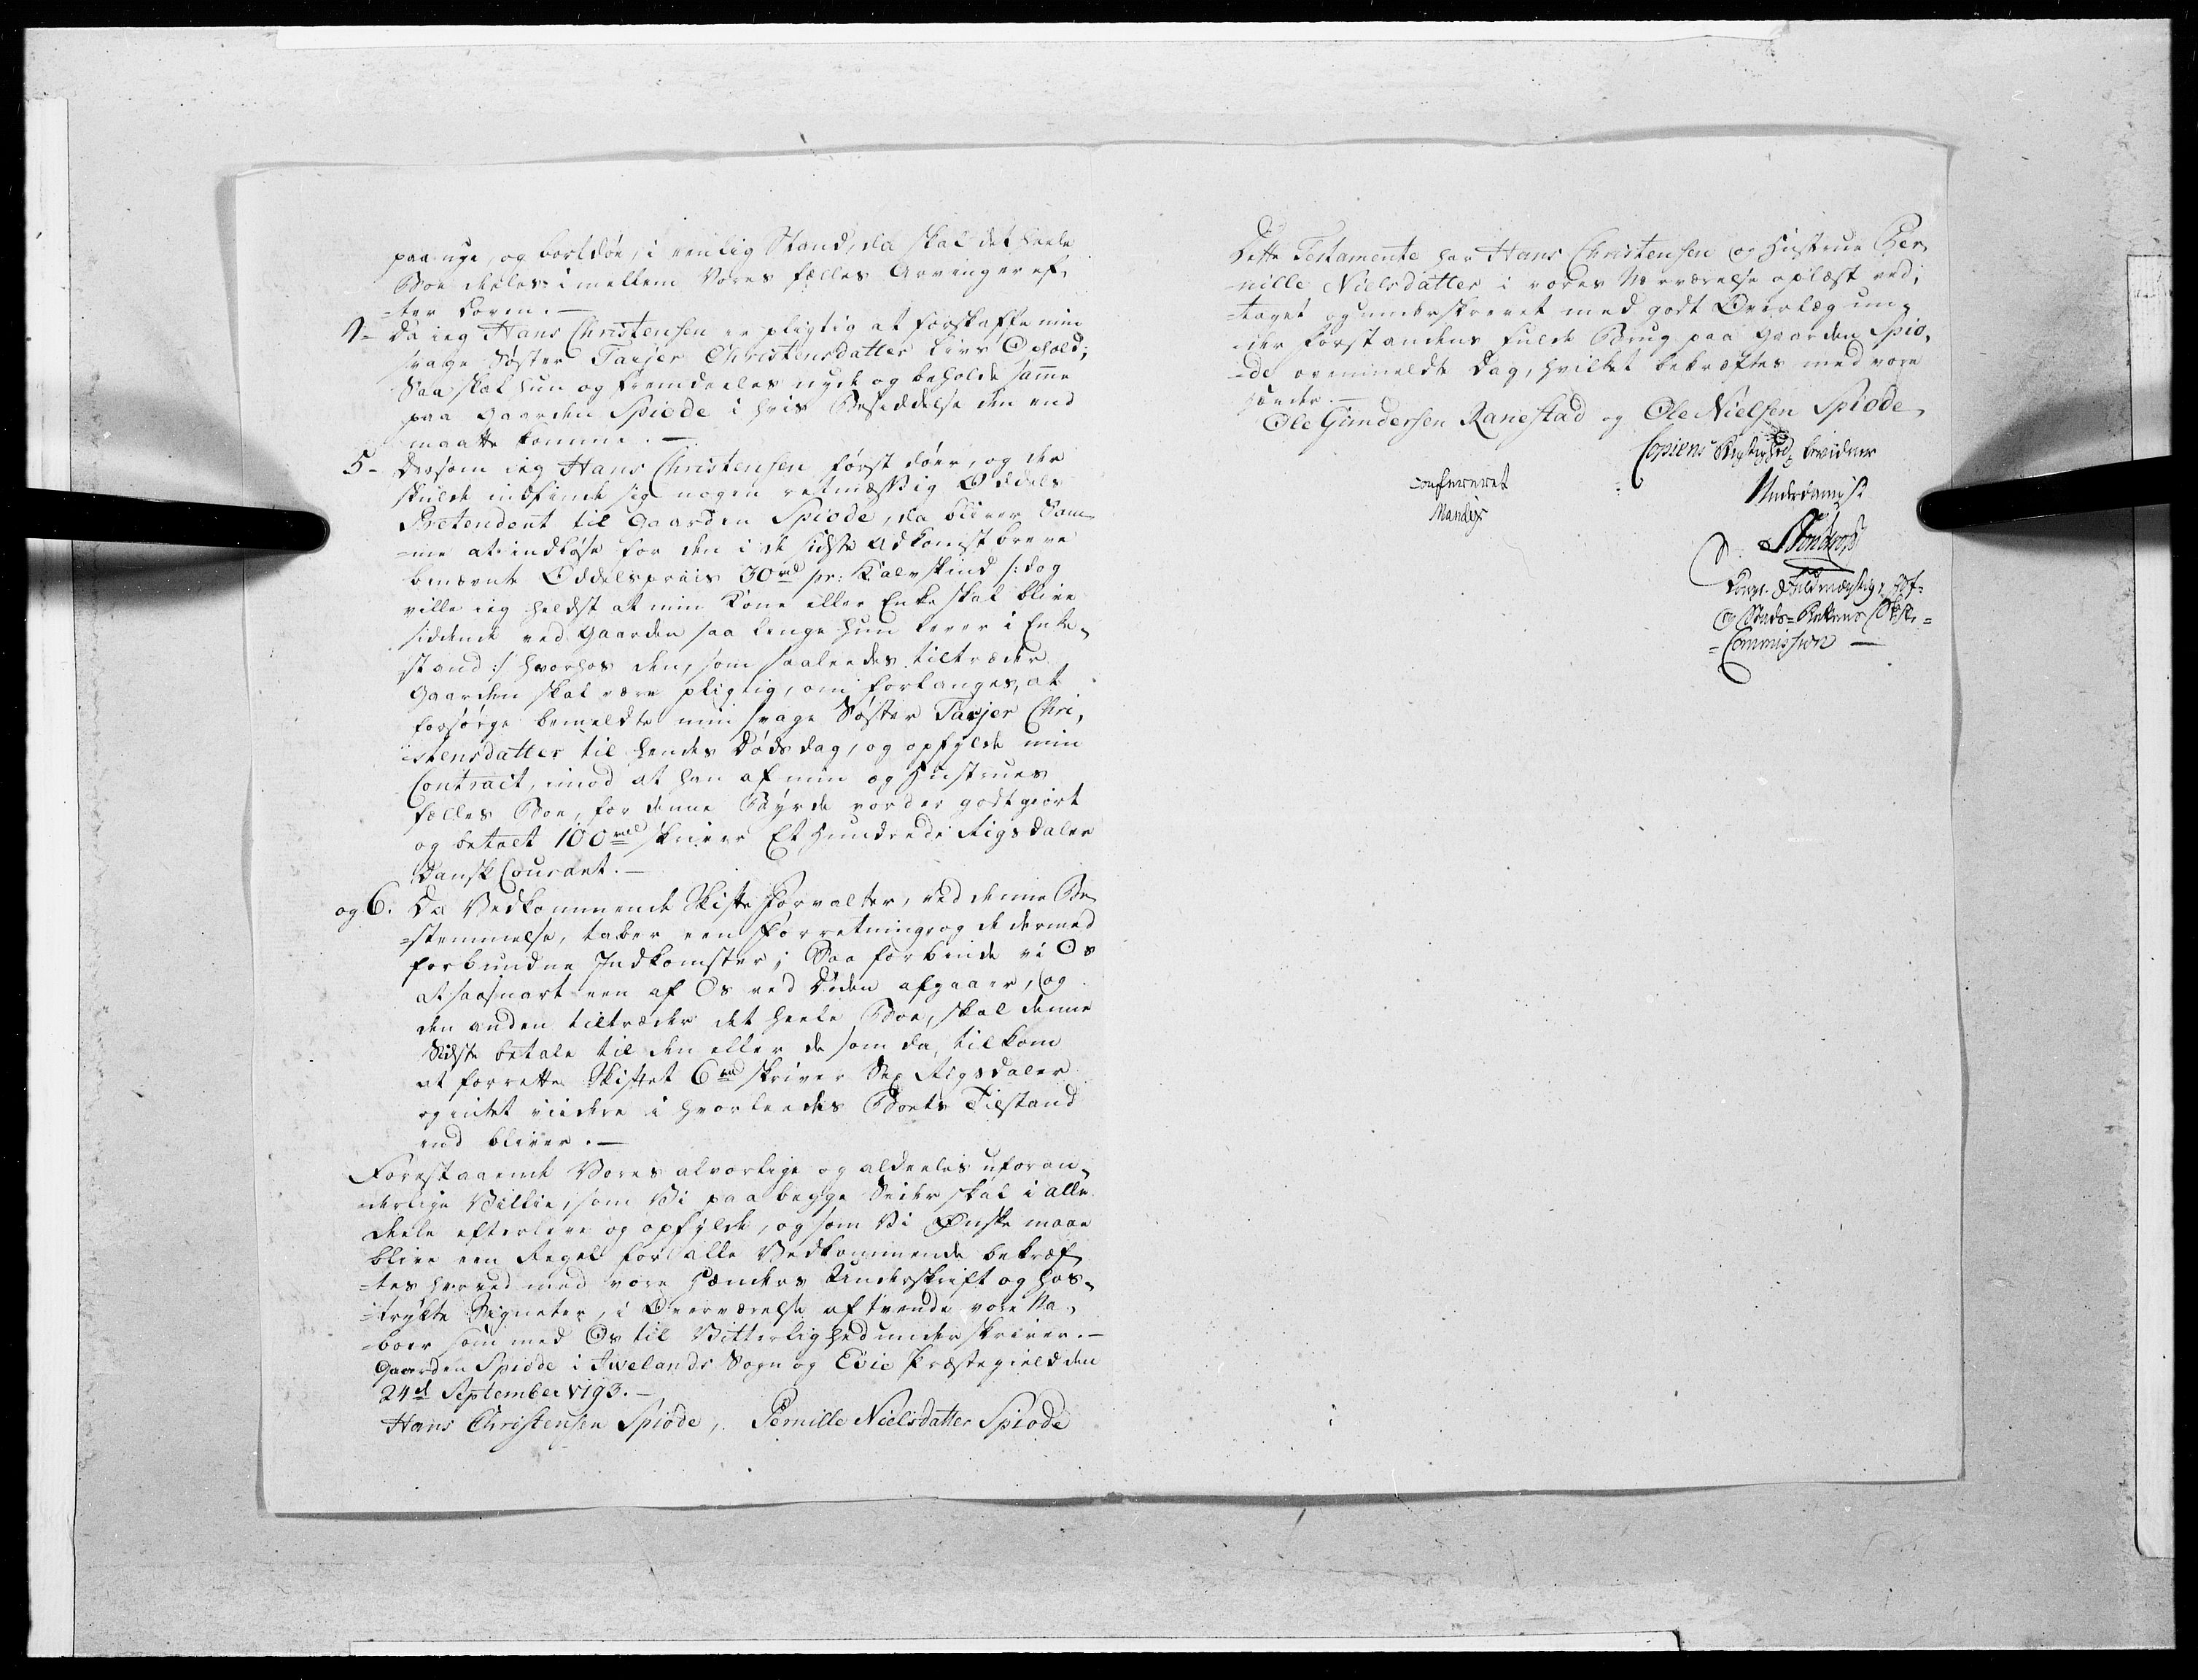 paa uge, og bortdøe, i eenlig Stand, da skal det heele
Boe deeles imellem Vores fælles Arvinger ef-
-ter Loven.-
Da ieg Hans Christensen er pligtig at forskaffe min
svage Søster Tarjer Christensdatter Livs Ophold;
Saa skal hun og fremdeeles nyde og beholde samme
paa Gaarden Spiøde i hvis Besiddelse den end
maatte komme.-
5- Dersom ieg Hans Christensen først døer, og der
skulde indfinde sig nogen retmæssig Oddels
Pretendent til Gaarden Spiøde, da bliver Sam-
-me at indløse for den i de sidste Adkomstbreve
benævnte Oddelspriis 30 rd pr: Kalvskind /: dog
ville ieg heldst at min Kone eller Enke skal blive
siddende ved Gaarden saa længe hun lever i Enke-
stand :/ hvorhos den, som saaledes tiltræder
Gaarden skal være pligtig, om forlanges, at
forsørge bemeldte min svage Søster Tarjer Chri-
-stensdatter til hendes Dødsdag, og opfylde min
Contract, imod at han af min og Hustrues
fælles Boe, for denne Byrde vorder godtgiort
og betalt 100 rd skriver Et Hundrede Rigsdaler
Dansk Courant.-
og 6. Da Vedkommende Skifte Forvalter, ved denne Be-
-stemmelse, taber een Forretning og de dermed
forbundne Indkomster; Saa forbinde vi Os
at saasnart een af Os ved Døden afgaaer, og
den anden tiltræder det heele Boe, skal denne
Sidste betale til den eller de som da tilkom
at forrette Skiftet 6 rd skriver Sex Rigsdaler
og intet viidere i hvorleedes Boets Tilstand
end bliver.-
Forestaaende Vores alvorlige og aldeeles uforan-
-derlige Villie, som Vi paa begge Sider skal i alle
Deele efterleve og opfylde, og som Vi Ønske maae
blive een Regel for alle Vedkommende bekræf-
-tes herved med vore Hænders Underskrift og hos-
-trykte Signeter, i Overværelse af tvende vore Na-
-boer som med Os til Vitterlighed underskriver.-
Gaarden Spiøde i Ivelands Sogn og Evie Præstegield den
24d September 1793.-
Hans Christensen Spiøde, Pernille Nielsdatter Spiøde
Dette Testamente har Hans Christensen og Hustrue Per-
-nille Nielsdatter i vores Nærværelse oplæst ved-
-taget og underskrevet med godt Overlæg un-
-der Forstandens fulde Brug paa Gaarden Spiø-
-de ovenmeldte Dag, hvilket bekræftes med vore
Hænder.-
Ole Gundersen Ranestad og Ole Nielsen Spiøde
Copiens Rigtighed bevidner
confereret
Underdanigst
Commission -